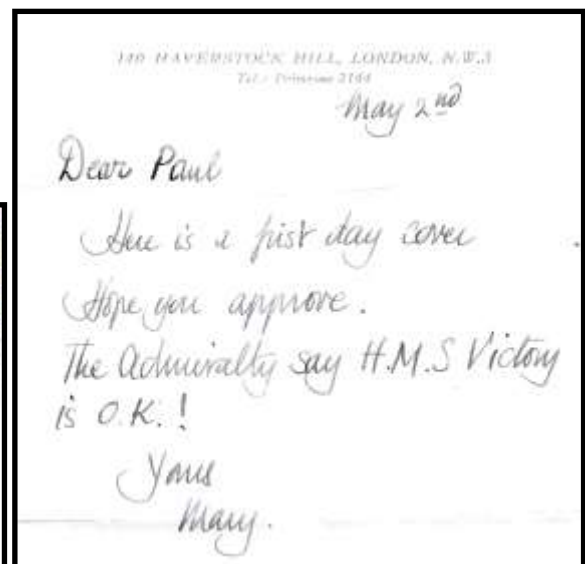 140 HAVERSTOCK HILL, LONDON, N.W.3
Tel: Primrose 2144
May 2nd
Dear Paul
Here is a first day cover
Hope you approve.
The Admiralty say H.M.S Victory
is O.K.!
Yours
Mary.